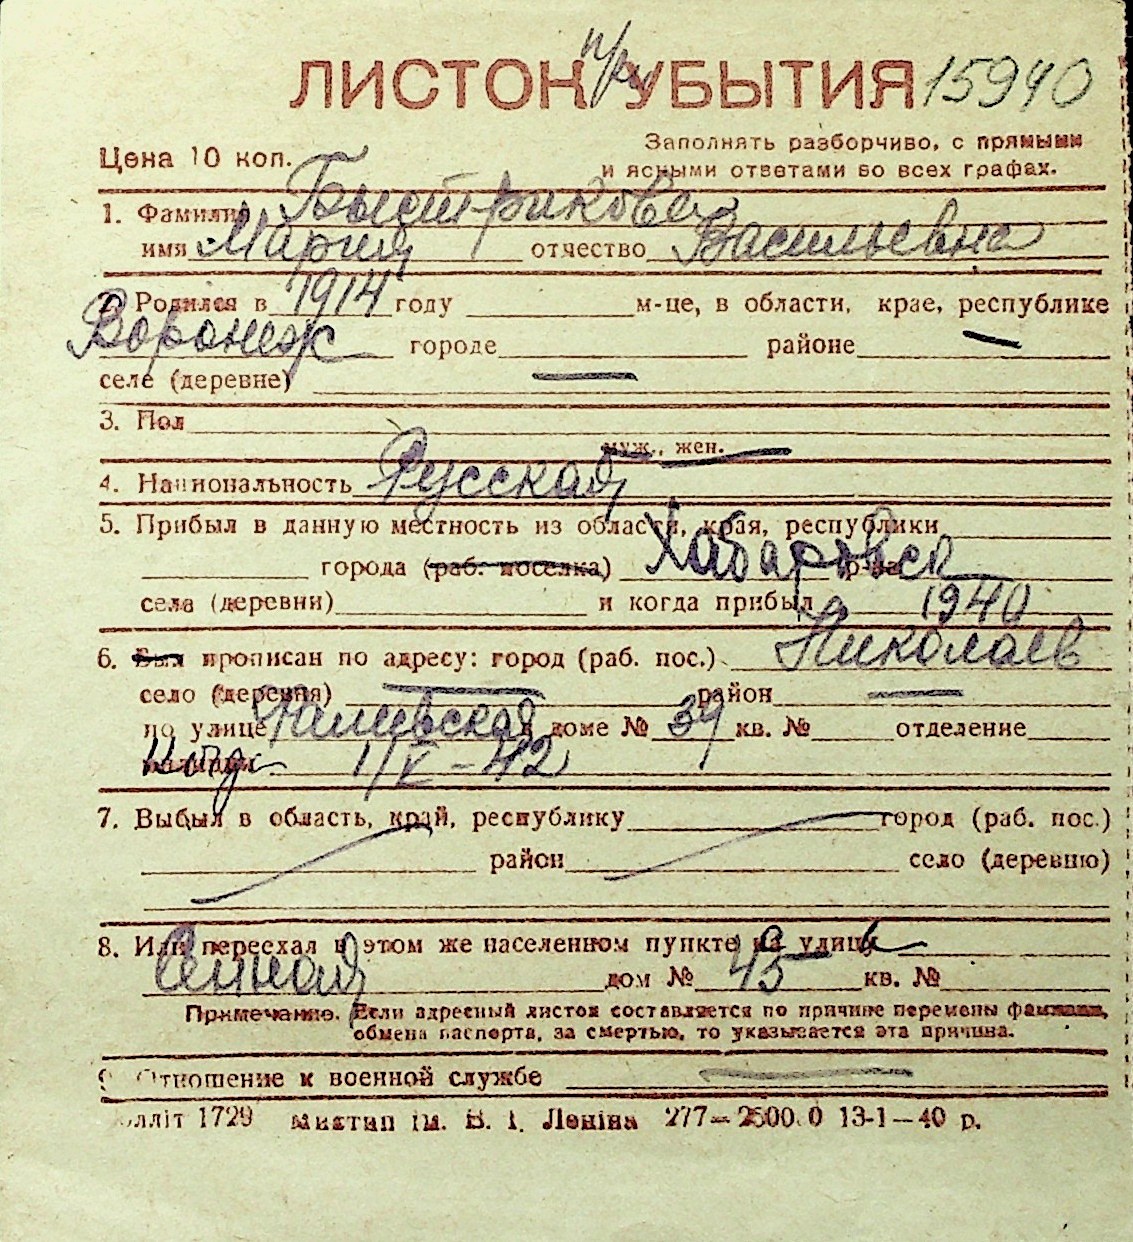 ЛИСТОК УБЫТИЯ 15940
Цена 10 коп.
Заполнять разборчиво, с прямыми
и ясными ответами во всех графах.
1. Фамилия Быстрикова
имя Мария отчество Васильевна
2. Родился в 1914 году м-це, в области, крае, республике
Воронеж городе районе —
селе (деревне) —
3. Пол
муж., жен.
4. Национальность Русская
5. Прибыл в данную местность из области, края, республики
города (раб. поселка) Хабаровск р-на
села (деревни) и когда прибыл 1940
6. Был прописан по адресу: город (раб. пос.) Николаев
село (деревня) — район —
по улице доме № 39 кв. № отделение
милиции 1/V-42
7. Выбыл в область, край, республику город (раб. пос.)
район село (деревню)
8. Или переехал в этом же населенном пункте на улицу
Сенная дом № 45 кв. №
Примечание. Если адресный листок составляется по причине перемены фамилии,
обмена паспорта, за смертью, то указывается эта причина.
9. Отношение к военной службе —
лліт 1729 Миктип ім. В. І. Леніна 277—2500.0 13-1—40 р.